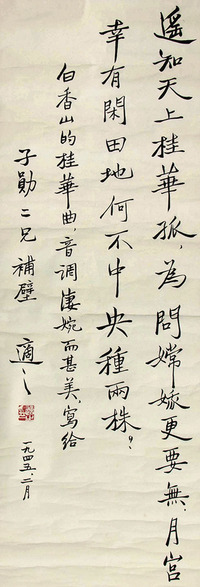 遥知天上桂華孤，為問嫦娥更要無，月宮
幸有閑田地何不中央種兩株？
白香山的桂華曲，音調淒婉而甚美，寫給
子勛二兄補壁　適之
一九四五，二月